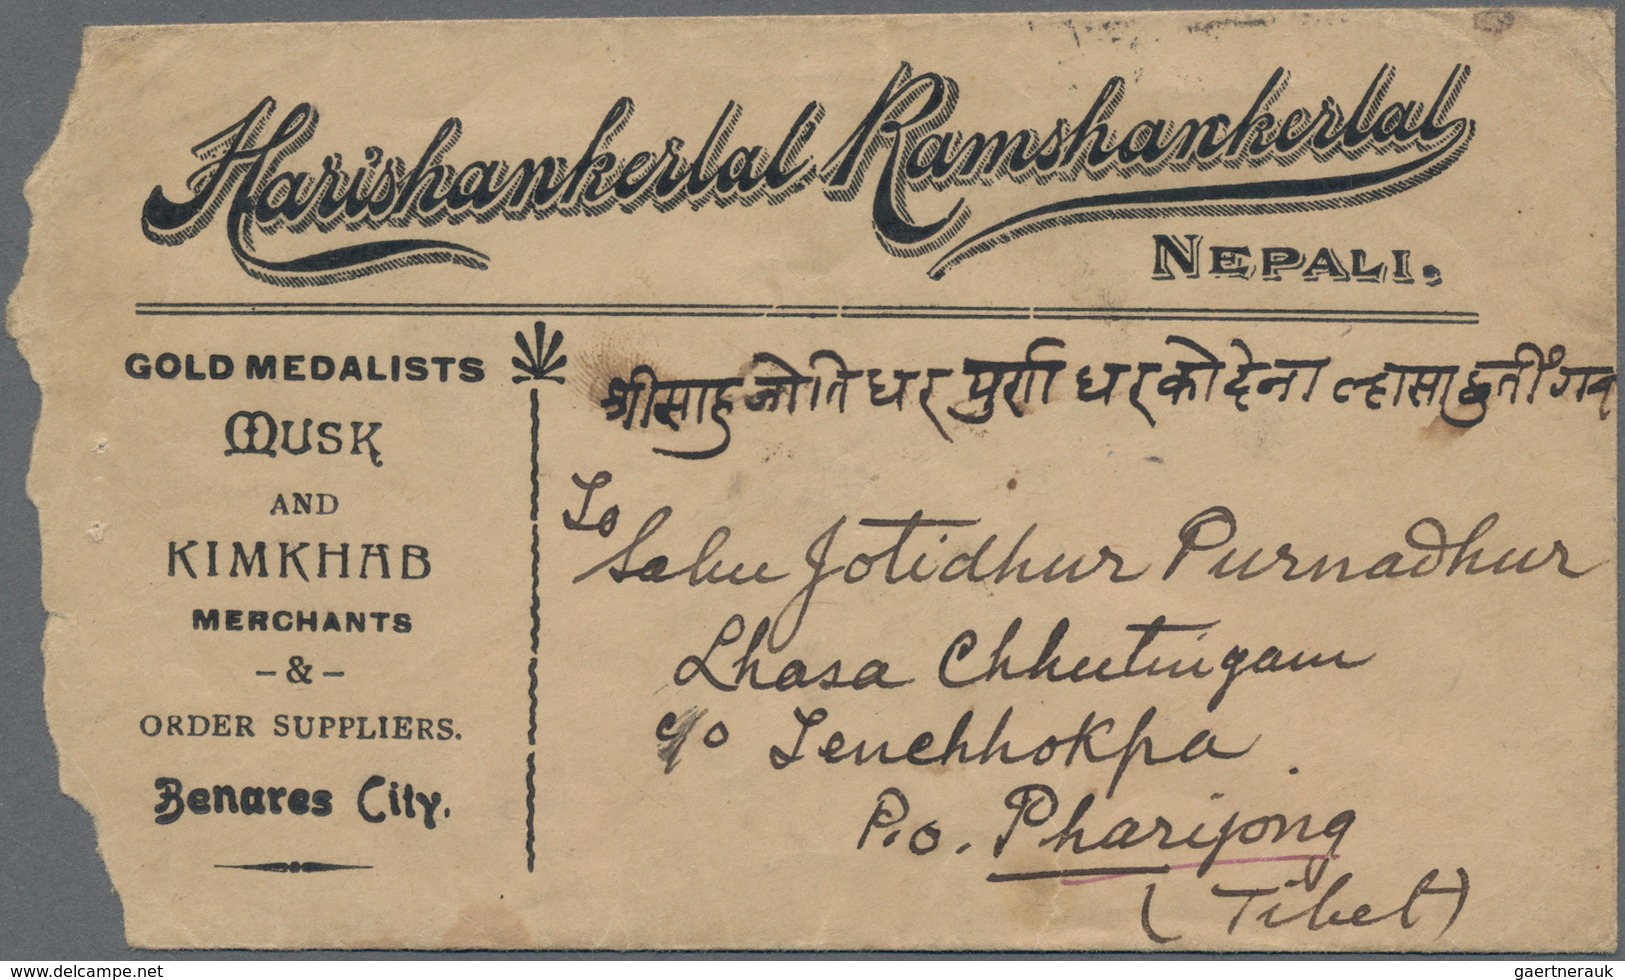 Harishankerlal Ramshankerlal
NEPALI.
GOLD MEDALISTS
MUSK
AND
KIMKHAB
MERCHANTS
-&-
ORDER SUPPLIERS.
Benares City.
श्रीसाहु जोतिधर पुर्णाधरको देना ल्हासा छुतींगम
To
Sahu Jotidhur Purnadhur
Lhasa Chhutingam
c/o Tenchhokpa
P.o. Pharijong
(Tibet)
www.delcampe.net
gaertnerauk